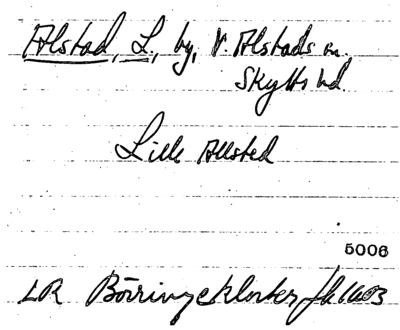 Alstad, L., by, V. Alstads sn.
Skytts hd
Lille Allsted
5006
LR Börringekloster